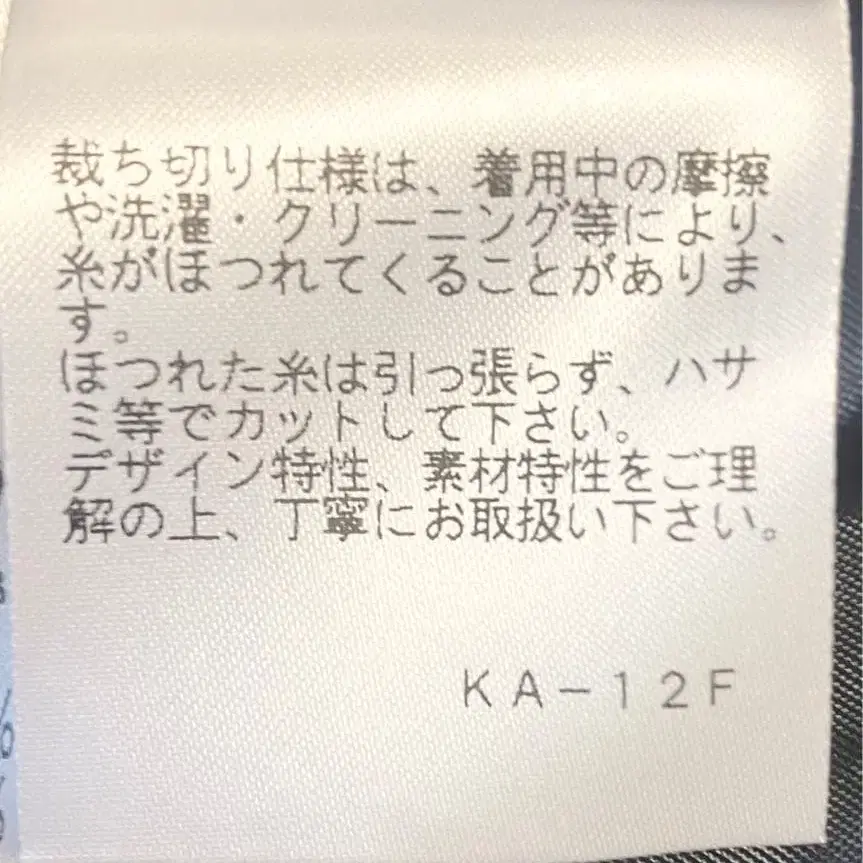 裁ち切り仕様は、着用中の摩擦
や洗濯・クリーニング等により、
糸がほつれてくることがありま
す。
ほつれた糸は引っ張らず、ハサ
ミ等でカットして下さい。
デザイン特性、素材特性をご理
解の上、丁寧にお取扱い下さい。
KA-12F